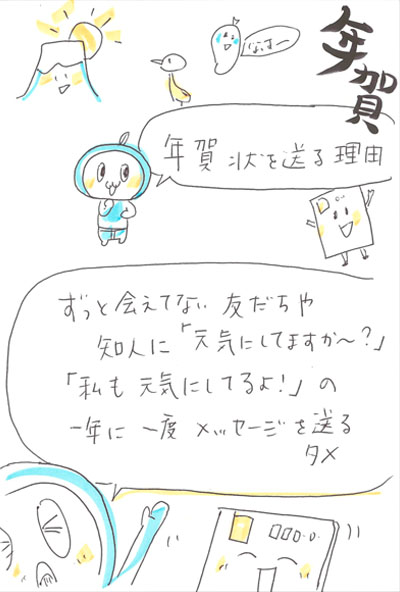 年賀
年賀状を送る理由
ずっと会えてない友だちや
知人に「元気にしてますか〜?」
「私も元気にしてるよ!」の
一年に一度メッセージを送る
タメ